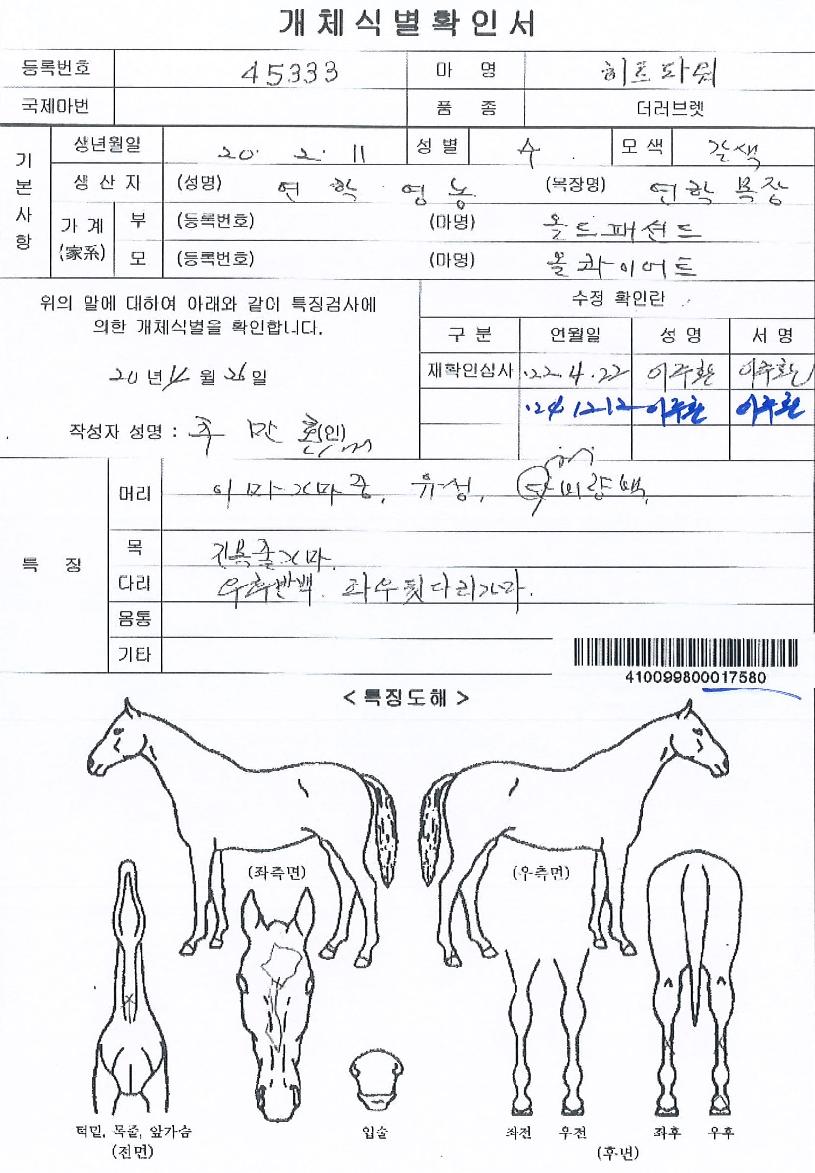 개체식별확인서
등록번호 45333 마 명 히트파워
국제마번 품 종 더러브렛
기본사항
생년월일 20. 2. 11 성별 수 모색 갈색
생산자 (성명) 연학영농 (목장명) 연학목장
가계 (家系) 부 (등록번호) (마명) 올드패션드
모 (등록번호) (마명) 올콰이어트
위의 말에 대하여 아래와 같이 특징검사에
의한 개체식별을 확인합니다.
20년 11월 26일
작성자 성명 : (인)
수정 확인란
구분 연월일 성명 서명
재확인심사 '22.4.22 이주환 이주환
'24.12.12 이주환 이주환
특 징
머리 이마가마중, 유성, 비량백
목 가마.
다리 우후반백. 좌우뒷다리가마.
몸통
기타
410099800017580
< 특징도해 >
(좌측면) (우측면)
턱밑, 목줄, 앞가슴 입술 좌전 우전 좌후 우후
(전면) (후면)